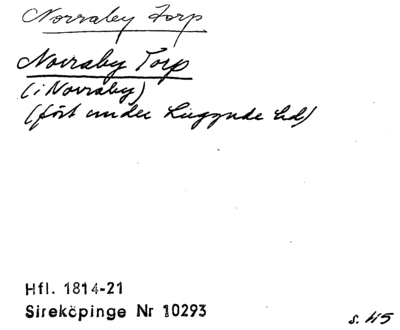 Norraby Torp
Norraby Torp
(i Norraby)
(fört under Luggude hd)
Hfl. 1814-21
Sireköpinge Nr 10293
s. 45